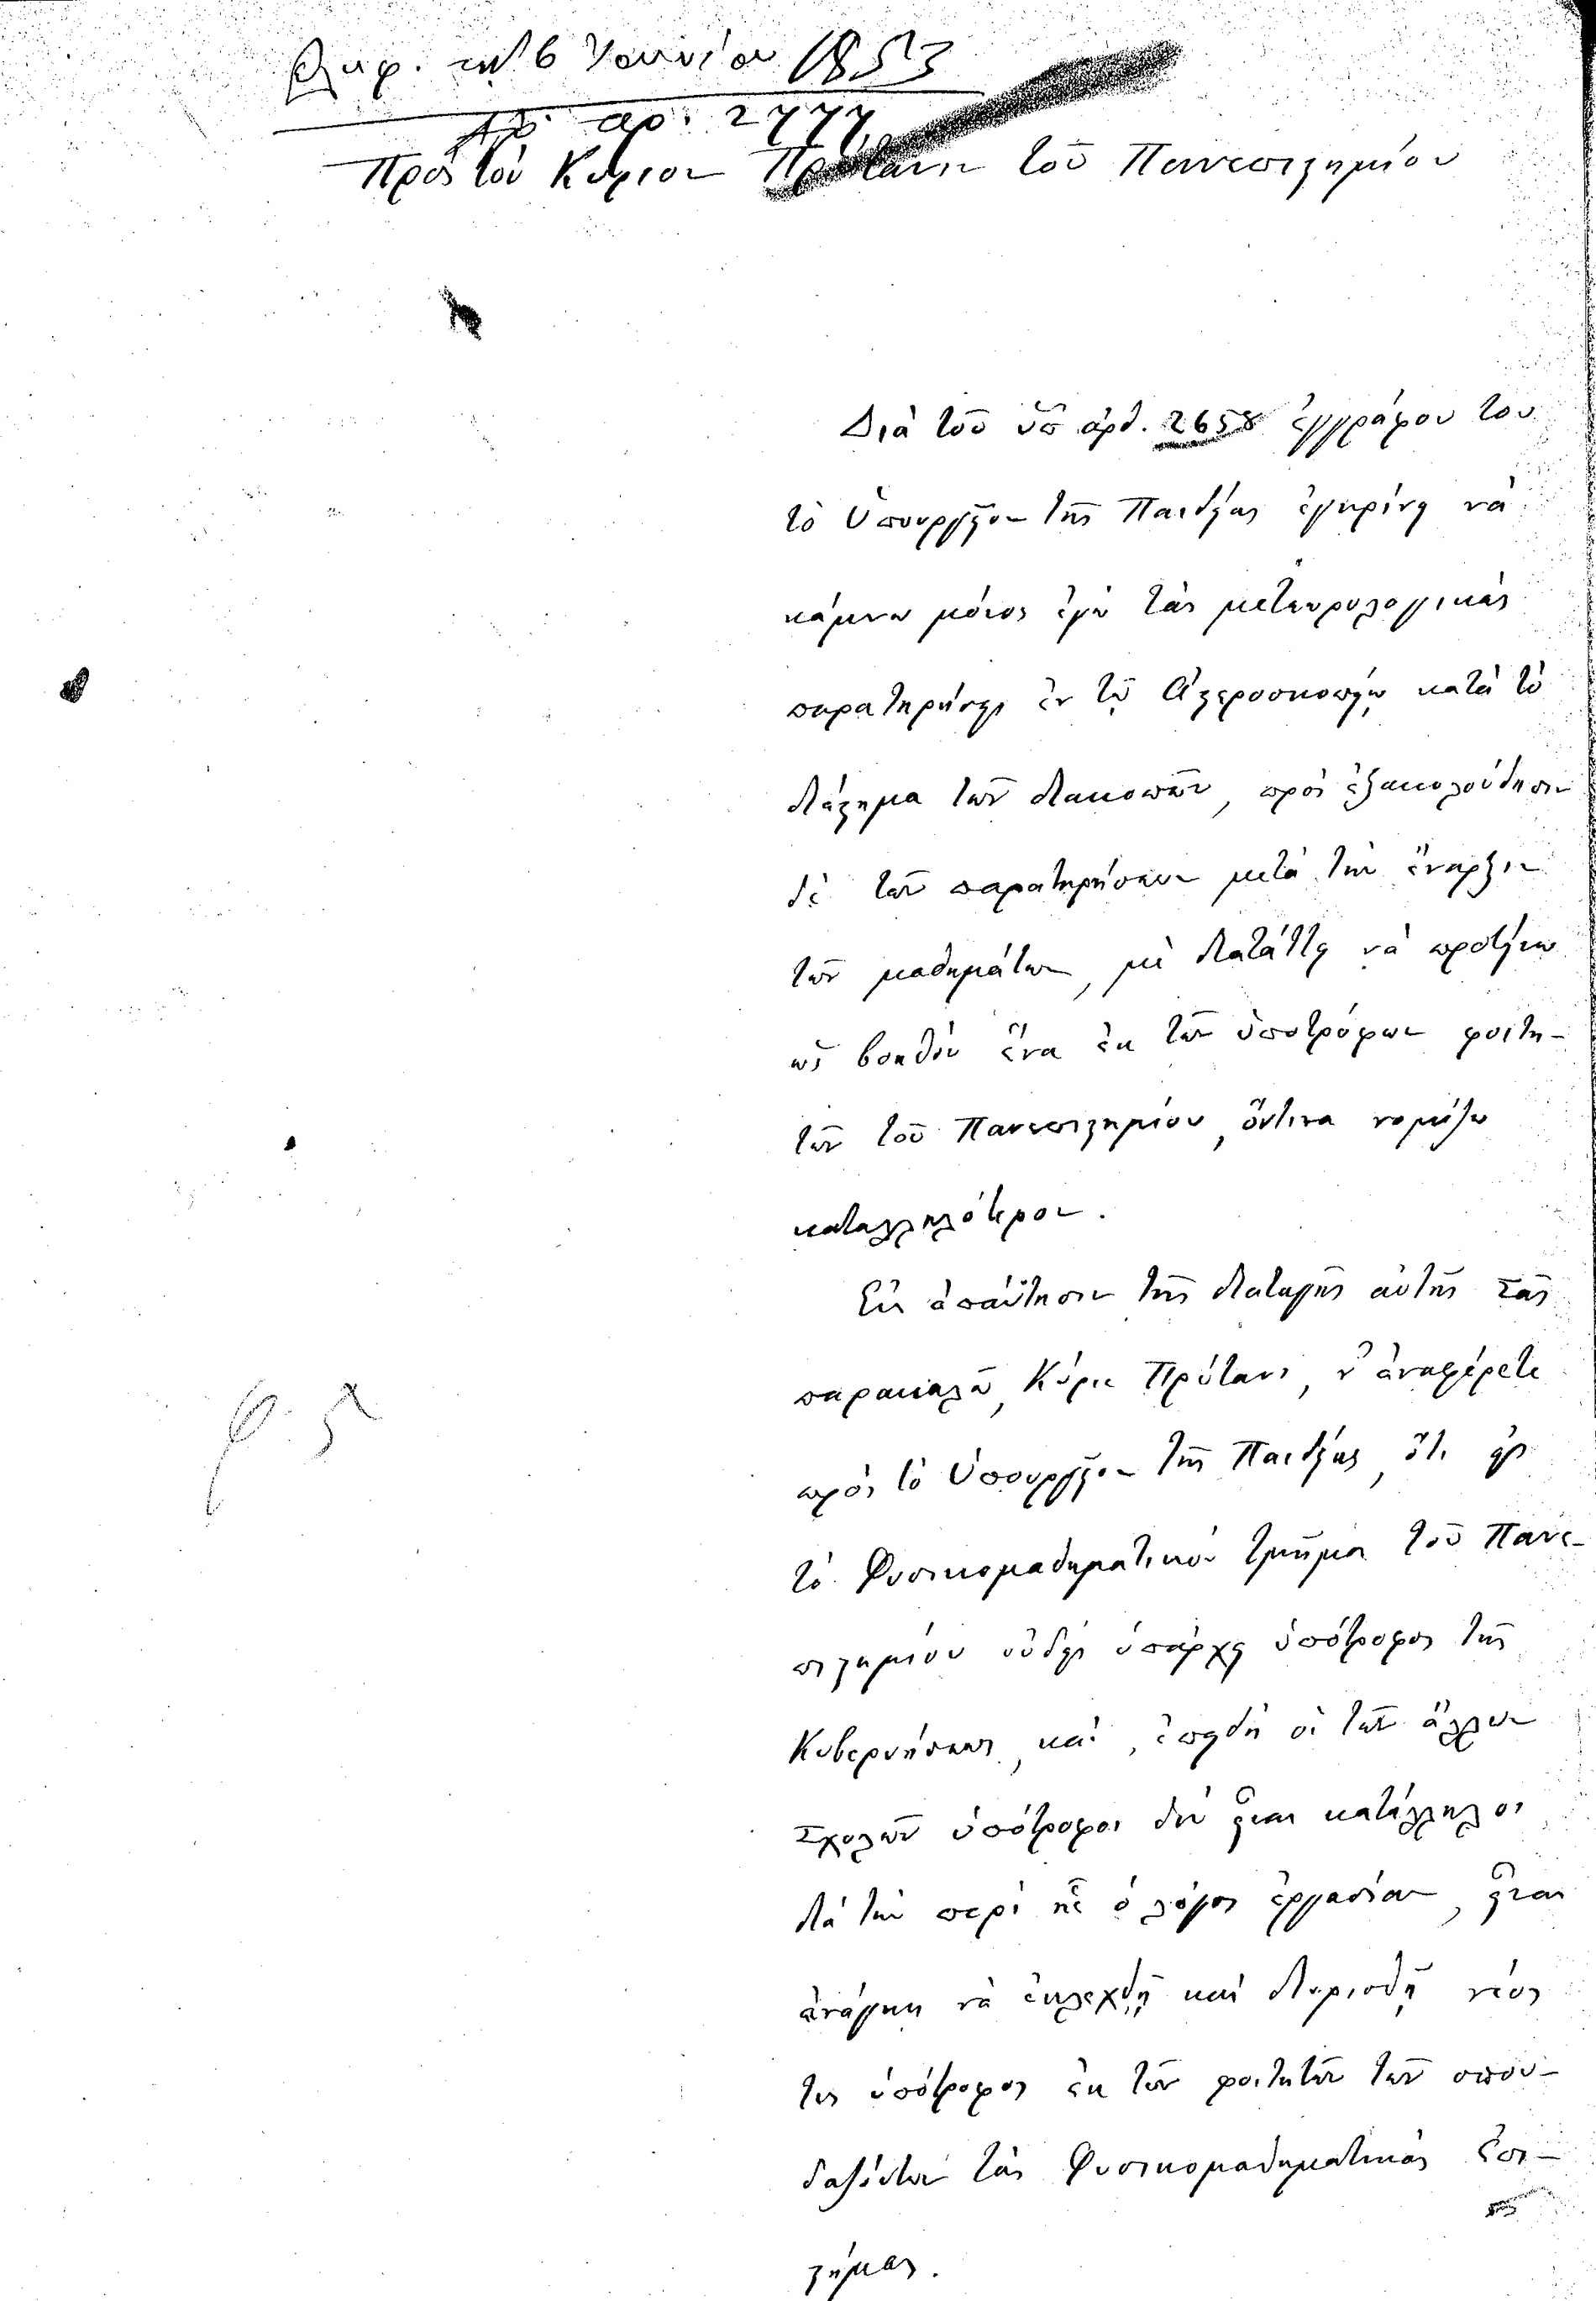 τῇ 6 Ἰουνίου 1853
ἀρ. 2777
Πρὸς τὸν Κύριον Πρύτανιν τοῦ Πανεπιστημίου
Διὰ τοῦ ὑπ' ἀρθ. 2658 ἐγγράφου του
τὸ Ὑπουργεῖον τῆς Παιδείας ἐγκρίνει νὰ
κάμνω μόνος ἐγὼ τὰς μετεωρολογικὰς
παρατηρήσεις ἐν τῷ Ἀστεροσκοπείῳ κατὰ τὸ
διάστημα τῶν διακοπῶν, πρὸς ἐξακολούθησιν
δὲ τῶν παρατηρήσεων μετὰ τὴν ἔναρξιν
τῶν μαθημάτων, μὲ διατάττει νὰ προτείνω
ὡς βοηθὸν ἕνα ἐκ τῶν ὑποτρόφων φοιτη-
τῶν τοῦ Πανεπιστημίου, ὅντινα νομίζω
καταλληλότερον.
Εἰς ἀπάντησιν τῆς διαταγῆς αὐτῆς Σᾶς
παρακαλῶ, Κύριε Πρύτανι, ν' ἀναφέρετε
πρὸς τὸ Ὑπουργεῖον τῆς Παιδείας, ὅτι εἰς
τὸ Φυσικομαθηματικὸν τμῆμα τοῦ Πανε-
πιστημίου οὐδεὶς ὑπάρχει ὑπότροφος τῆς
Κυβερνήσεως, καὶ, ἐπειδὴ οἱ τῶν ἄλλων
Σχολῶν ὑπότροφοι δὲν εἶναι κατάλληλοι
διὰ τὴν περὶ ἧς ὁ λόγος ἐργασίαν, εἶναι
ἀνάγκη νὰ ἐκλεχθῇ καὶ διορισθῇ νέος
τις ὑπότροφος ἐκ τῶν φοιτητῶν τῶν σπου-
δαζόντων τὰς Φυσικομαθηματικὰς Ἐπι-
στήμας.